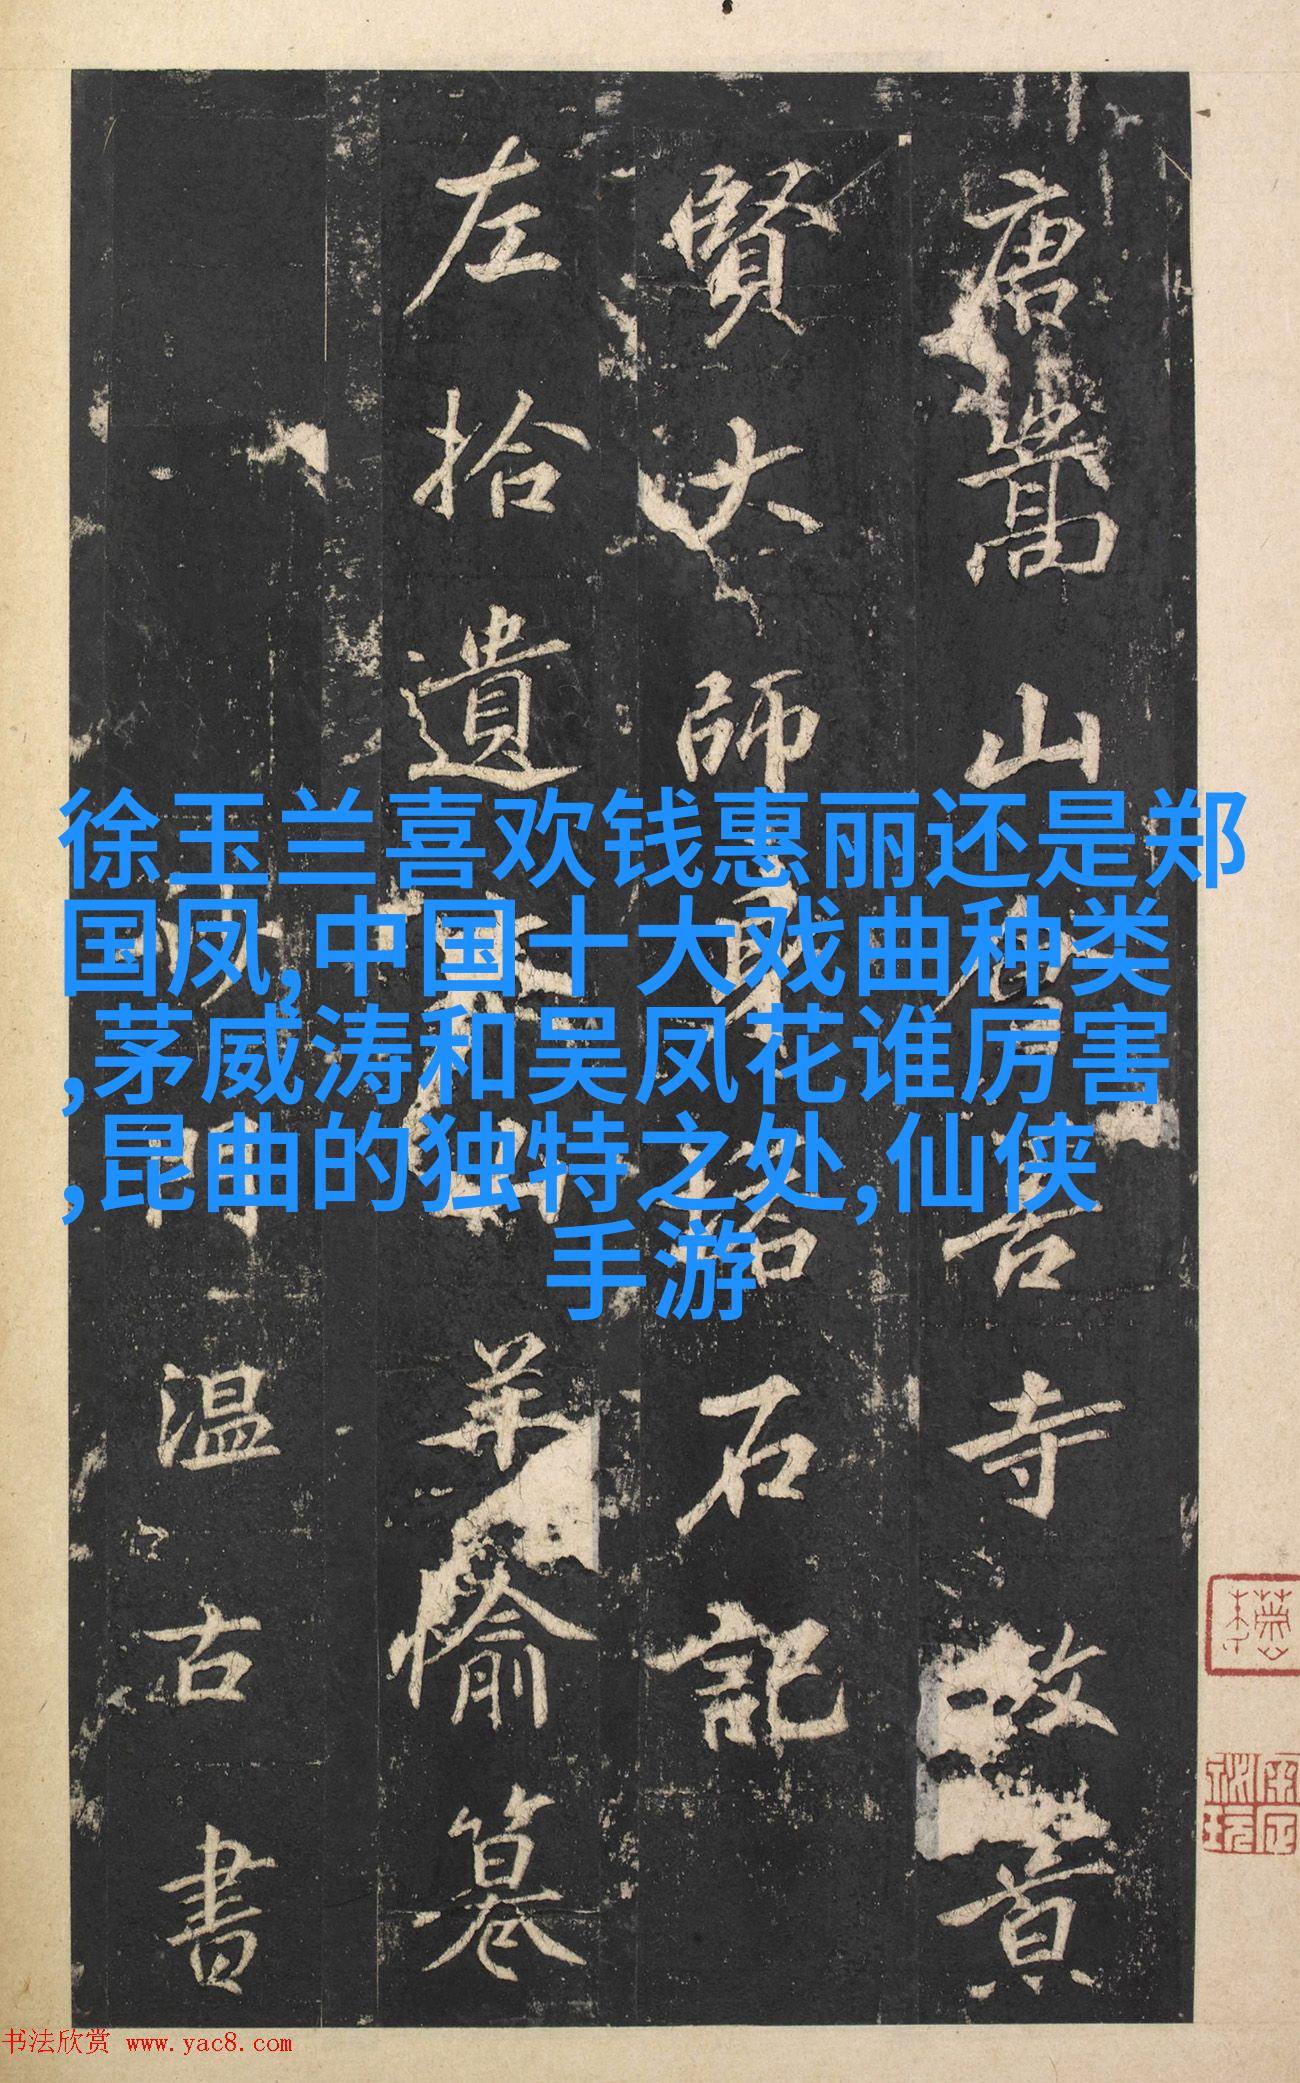 唐嵩山
寺故景
賢大師身塔石記
左拾遺
羊愉篹
沙門溫古書
徐玉兰喜欢钱惠丽还是郑
国凤,中国十大戏曲种类
,茅威涛和吴凤花谁厉害
,昆曲的独特之处,仙侠
手游
书法欣赏 www.yac8.com